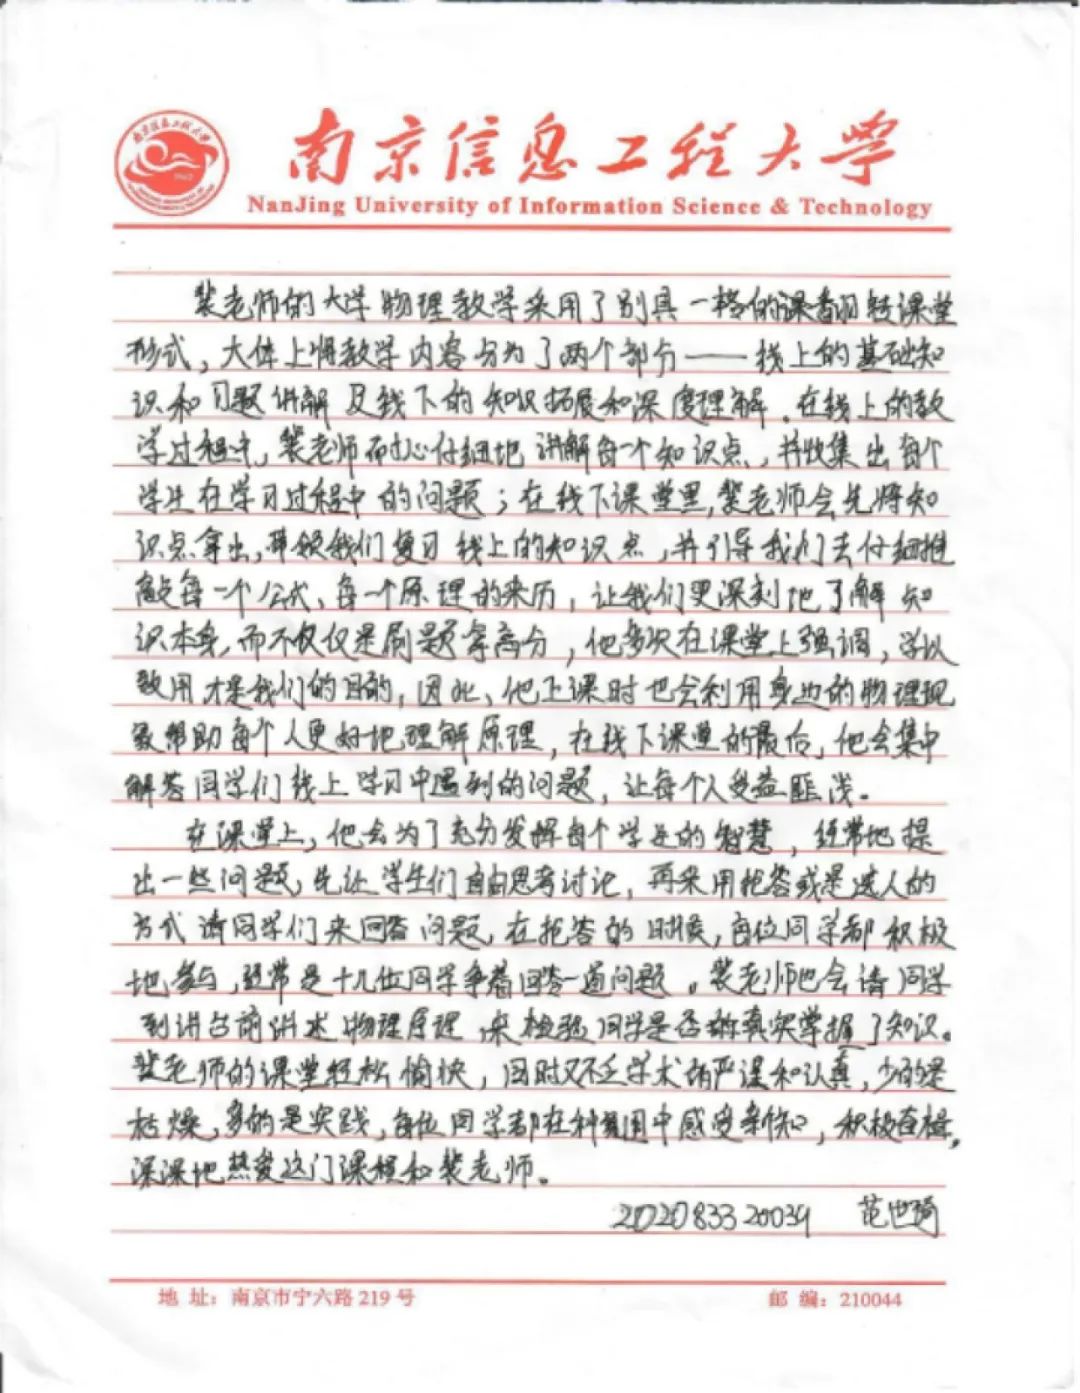 南京信息工程大学
NanJing University of Information Science & Technology
裴老师的大学物理教学采用了别具一格的课翻转课堂
形式，大体上将教学内容分为了两个部分——线上的基础知
识和习题讲解及线下的知识拓展和深度理解。在线上的教
学过程中，裴老师耐心仔细地讲解每一个知识点，并收集出每个
学生在学习过程中的问题；在线下课堂里，裴老师会先将知
识点拿出，带领我们复习线上的知识点，并引导我们去仔细推
敲每一个公式、每一个原理的来历，让我们更深刻地了解知
识本身，而不仅仅是刷题拿高分，他多次在课堂上强调，学以
致用才是我们的目的，因此，他上课时也会利用身边的物理现
象帮助每个人更好地理解原理，在线下课堂的最后，他会集中
解答同学们线上学习中遇到的问题，让每个人受益匪浅。
在课堂上，他会为了充分发挥每个学生的智慧，经常地提
出一些问题，先让学生们自由思考讨论，再采用抢答或是选人的
方式请同学们来回答问题，在抢答的时候，每位同学都积极
地参与，经常是十几位同学争着回答一道问题。裴老师也会请同学
到讲台前讲述物理原理，来检验同学是否都真实掌握了知识。
裴老师的课堂轻松愉快，同时又不乏学术的严谨和认真，少的是
枯燥，多的是实践，每位同学都在中感受新知，积极自極，
深深地热爱这门课程和裴老师。
202083320039 范世琦
地 址：南京市宁六路219号
邮 编：210044